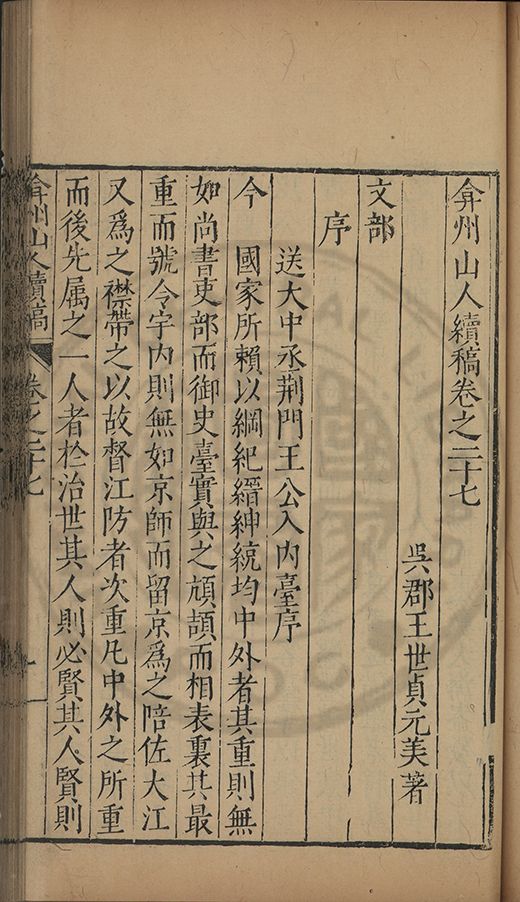 弇州山人續稿卷之二十七
吳郡王世貞元美著
文部
序
送大中丞荆門王公入内臺序
今 國家所賴以綱紀縉紳統均中外者其重則無
如尚書吏部而御史臺實與之頏頡而相表裏其最
重而號令宇内則無如京師而留京爲之陪佐大江
又爲之襟帶之以故督江防者次重凡中外之所重
而後先属之一人者於治世其人則必賢其人賢則
弇州山人續稿 卷之二十七 一